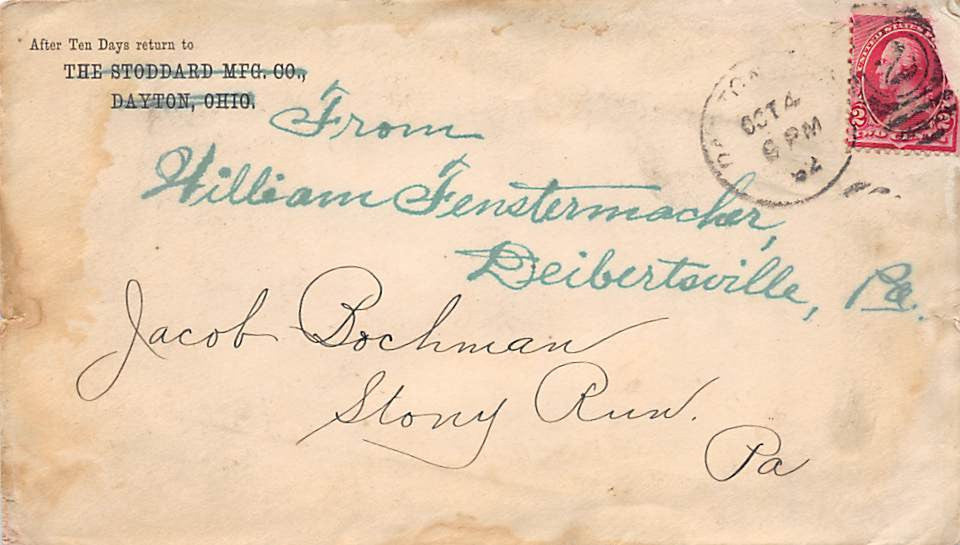 After Ten Days return to
THE STODDARD MFG. CO.,
DAYTON, OHIO.
From
William Fenstermacher,
Deibertsville, Pa.
Jacob Bochman
Stony Run.
Pa
OCT 4
6 PM
92
UNITED STATES
2 2